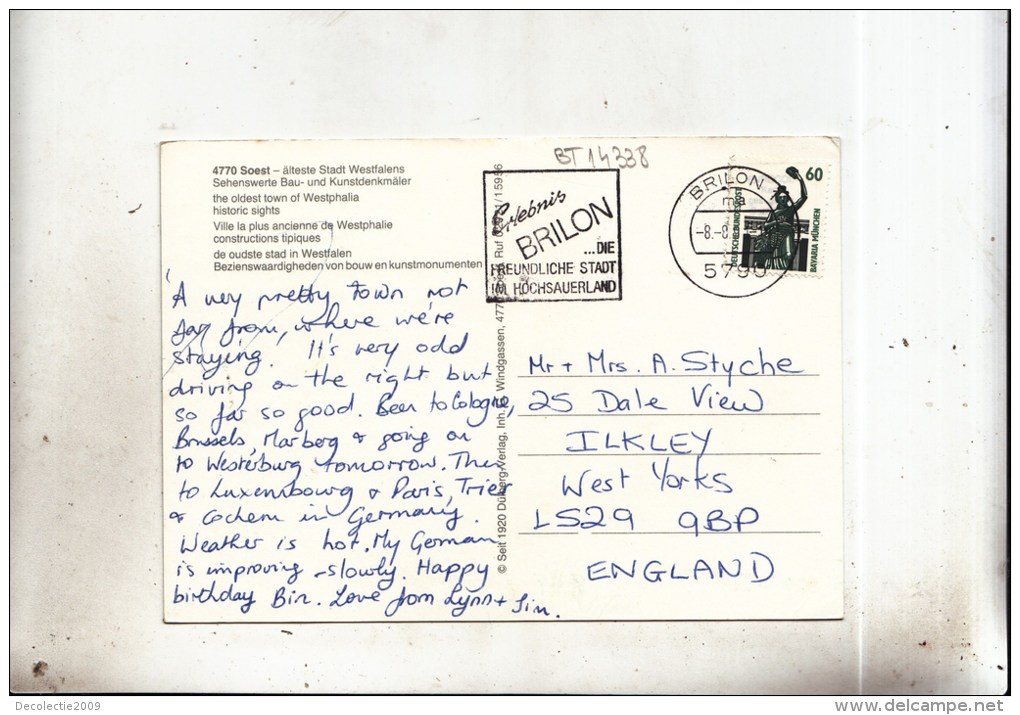 BT 14338
4770 Soest – älteste Stadt Westfalens
Sehenswerte Bau- und Kunstdenkmäler
the oldest town of Westphalia
historic sights
Ville la plus ancienne de Westphalie
constructions tipiques
de oudste stad in Westfalen
Bezienswaardigheden von bouw en kunstmonumenten
A very pretty town not
far from, where we're
staying. It's very odd
driving on the right but
so far so good. Been to Cologne,
Brussels, Marberg & going on
to Westerburg tomorrow. Then
to Luxembourg & Paris, Trier
& Cochem in Germany.
Weather is hot. My German
is improving - slowly. Happy
birthday Bin. Love from Lynn + Jim.
© Seit 1920 Dülberg-Verlag, Inh. Windgassen, 477 Ruf 1/15956
Erlebnis
BRILON
...DIE
FREUNDLICHE STADT
IM HOCHSAUERLAND
BRILON 1
ma
-8.-8.
5790
60
DEUTSCHE BUNDESPOST
BAVARIA MÜNCHEN
Mr + Mrs. A. Styche
25 Dale View
ILKLEY
West Yorks
LS29 9BP
ENGLAND
Decolectie2009
www.delcampe.net